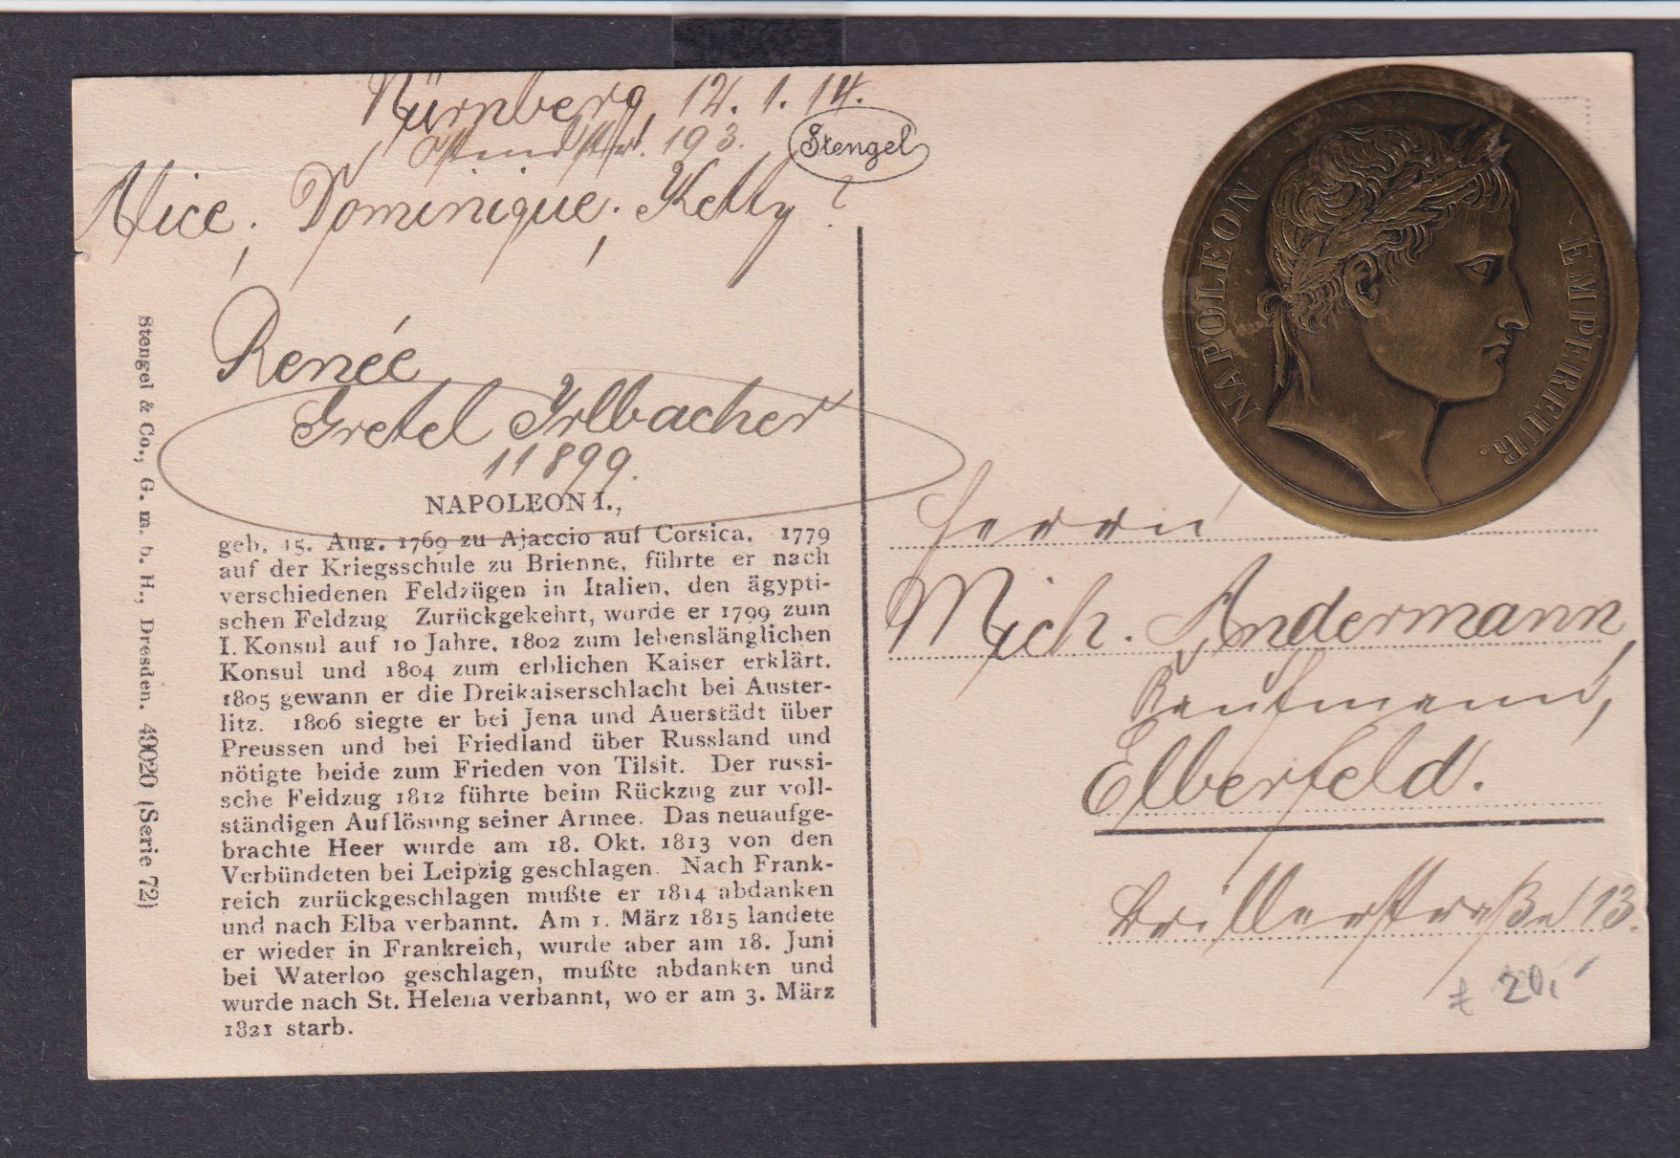 Nürnberg 12. 1. 14.
Ostendstr. 193.
Stengel
Alice, Dominique, Ketty?
Renée
Gretel Irlbacher
11899.
NAPOLEON I.,
geb. 15. Aug. 1769 zu Ajaccio auf Corsica. 1779
auf der Kriegsschule zu Brienne, führte er nach
verschiedenen Feldzügen in Italien, den ägypti-
schen Feldzug Zurückgekehrt, wurde er 1799 zum
I. Konsul auf 10 Jahre, 1802 zum lebenslänglichen
Konsul und 1804 zum erblichen Kaiser erklärt.
1805 gewann er die Dreikaiserschlacht bei Auster-
litz. 1806 siegte er bei Jena und Auerstädt über
Preussen und bei Friedland über Russland und
nötigte beide zum Frieden von Tilsit. Der russi-
sche Feldzug 1812 führte beim Rückzug zur voll-
ständigen Auflösung seiner Armee. Das neuaufge-
brachte Heer wurde am 18. Okt. 1813 von den
Verbündeten bei Leipzig geschlagen. Nach Frank-
reich zurückgeschlagen mußte er 1814 abdanken
und nach Elba verbannt. Am 1. März 1815 landete
er wieder in Frankreich, wurde aber am 18. Juni
bei Waterloo geschlagen, mußte abdanken und
wurde nach St. Helena verbannt, wo er am 3. März
1821 starb.
Stengel & Co., G. m. b. H., Dresden. 49020 (Serie 72)
NAPOLEON EMPEREUR.
Herrn
Mich. Andermann,
Kaufmann,
Elberfeld.
Brillerstraße 13.
20,